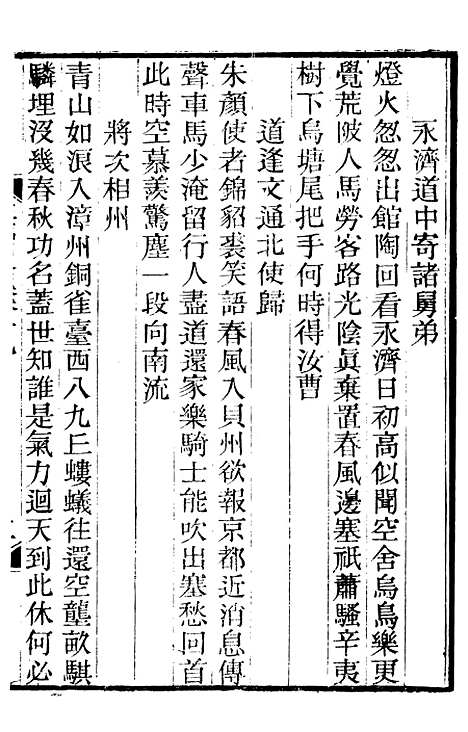 永濟道中寄諸舅弟
燈火怱怱出館陶回看永濟日初高似聞空舍烏鳥樂更
覺荒陂人馬勞客路光陰眞棄置春風邊塞祇蕭騷辛夷
樹下烏塘尾把手何時得汝曹
道逢文通北使歸
朱顏使者錦貂裘笑語春風入貝州欲報京都近消息傳
聲車馬少淹留行人盡道還家樂騎士能吹出塞愁回首
此時空慕羨驚塵一段向南流
將次相州
青山如浪入漳州銅雀臺西八九丘螻蟻往還空壟畝騏
驎埋沒幾春秋功名蓋世知誰是氣力迴天到此休何必